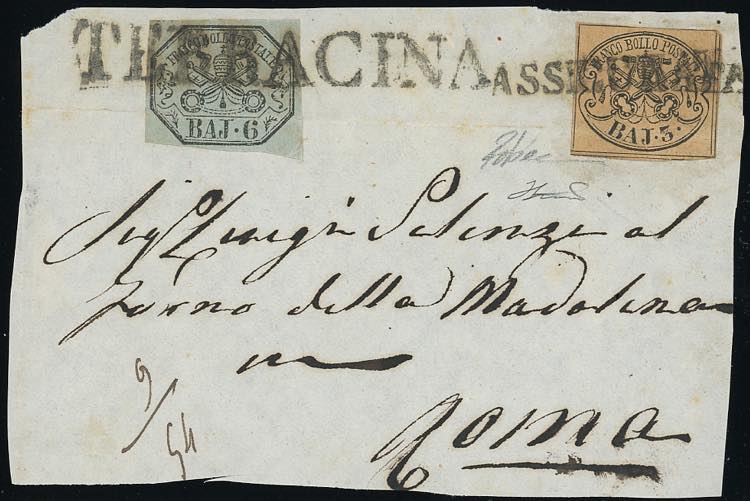 TERRACINA ASSICURATA
FRANCO BOLLO POSTALE
BAJ·6
FRANCO BOLLO POSTALE
BAJ·3·
Sig Luigi al
forno della Madalena
in
Roma
9/54